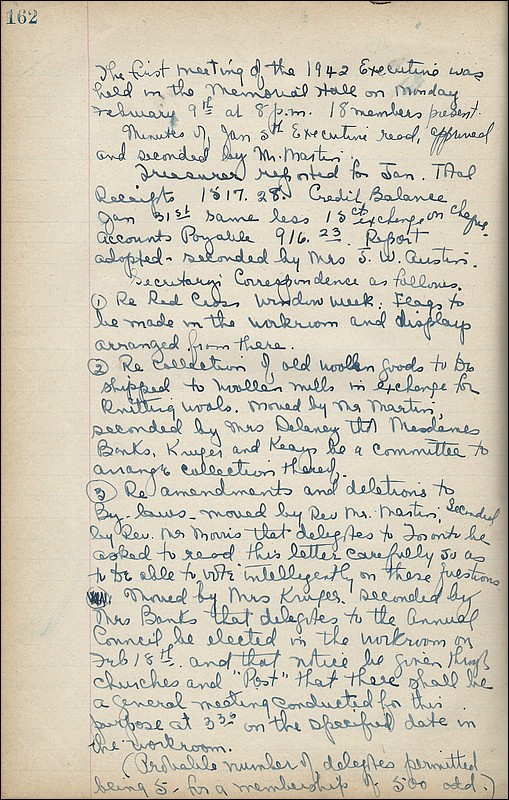 162
The first meeting of the 1942 Executive was
held in the Memorial Hall on Monday
February 9th at 8 p.m. 18 members present.
Minutes of Jan 5th Executive read, approved
and seconded by Mr. Martin.
Treasurer reported for Jan. Total
Receipts 1517.28. Credit Balance
Jan 31st same less 15cts exchange on cheque.
Accounts Payable 916.23 Report
adopted - seconded by Mrs J. W. Austin.
Secretary's Correspondence as follows.
① Re Red Cross Window Week. Flags to
be made in the workroom and displays
arranged from there.
② Re Collection of old woollen goods to be
shipped to Woollen Mills in exchange for
Knitting wools. Moved by Mr Martin,
seconded by Mrs Delaney that Mesdames
Banks, Kruger and Keays be a committee to
arrange collection thereof.
③ Re amendments and deletions to
By-laws - moved by Rev Mr. Martin, Seconded
by Rev. Mr Morris that delegates to Toronto be
asked to read this letter carefully so as
to be able to vote intelligently on these questions
Moved by Mrs Kruger. Seconded by
Mrs Banks that delegates to the Annual
Council be elected in the workroom on
Feb 18th. and that notice be given through
churches and "Post" that there shall be
a general meeting conducted for this
purpose at 3³⁰ on the specified date in
the workroom.
(Probable number of delegates permitted
being 5 - for a membership of 500 odd.)